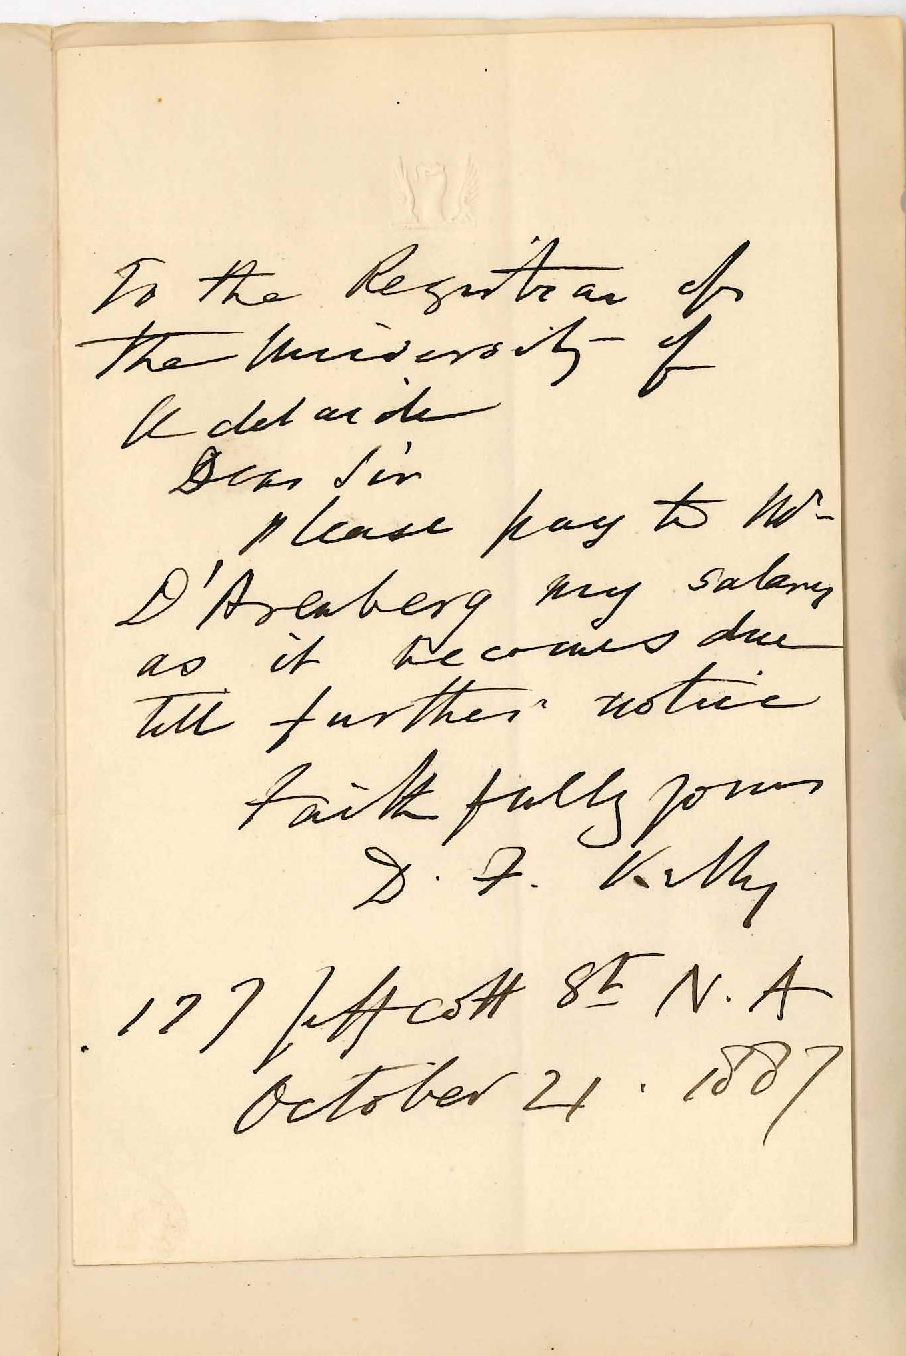 To the Registrar of
the University of
Adelaide
Dear Sir
please pay to Mr
D'Arenberg my salary
as it becomes due
till further notice
Faithfully yours
D. F. Kelly
177 Jeffcott St N. A
October 21. 1887